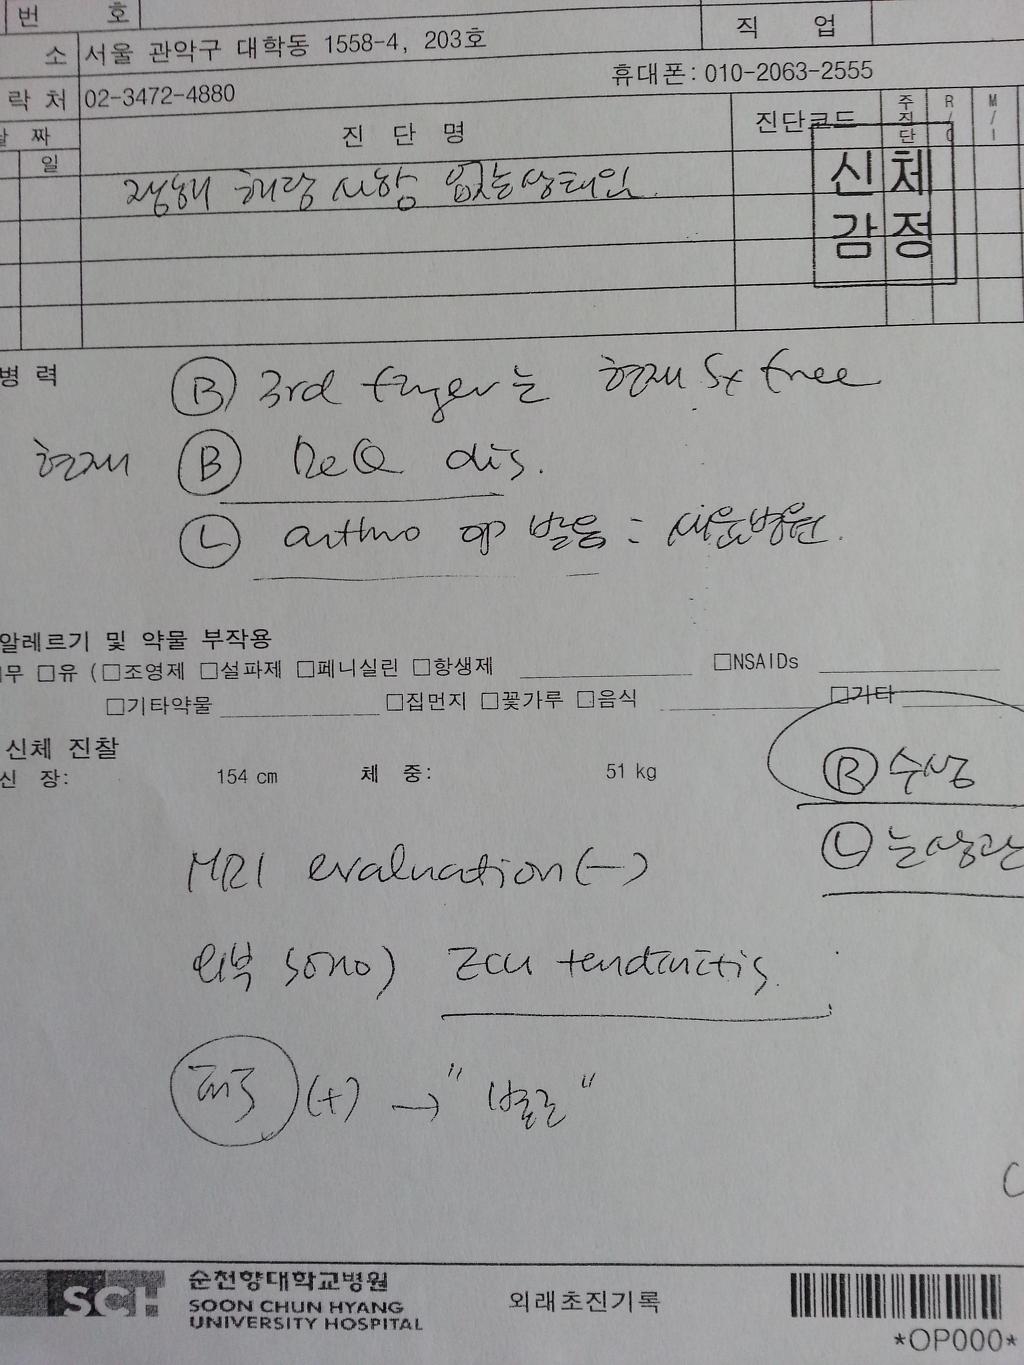 번 호
소 서울 관악구 대학동 1558-4, 203호 직 업
락 처 02-3472-4880 휴대폰: 010-2063-2555
날 짜 진 단 명 진단코드 주진단 R/O M/I
일
장해 해당 사항 없는 상태임.
신체
감정
병 력
Ⓡ 3rd finger는 현재 Sx free
현재 Ⓡ DeQ dis.
Ⓛ arthro op 받음 : 세운병원.
알레르기 및 약물 부작용
□무 □유 (□조영제 □설파제 □페니실린 □항생제 □NSAIDs
□기타약물 □집먼지 □꽃가루 □음식 □기타
신체 진찰
신 장: 154 cm 체 중: 51 kg
Ⓡ 수상
Ⓛ 는 상관
MRI evaluation (-)
외부 sono) ECU tendinitis.
(+) → "별로"
SCH 순천향대학교병원
SOON CHUN HYANG
UNIVERSITY HOSPITAL
외래초진기록
*OP000*